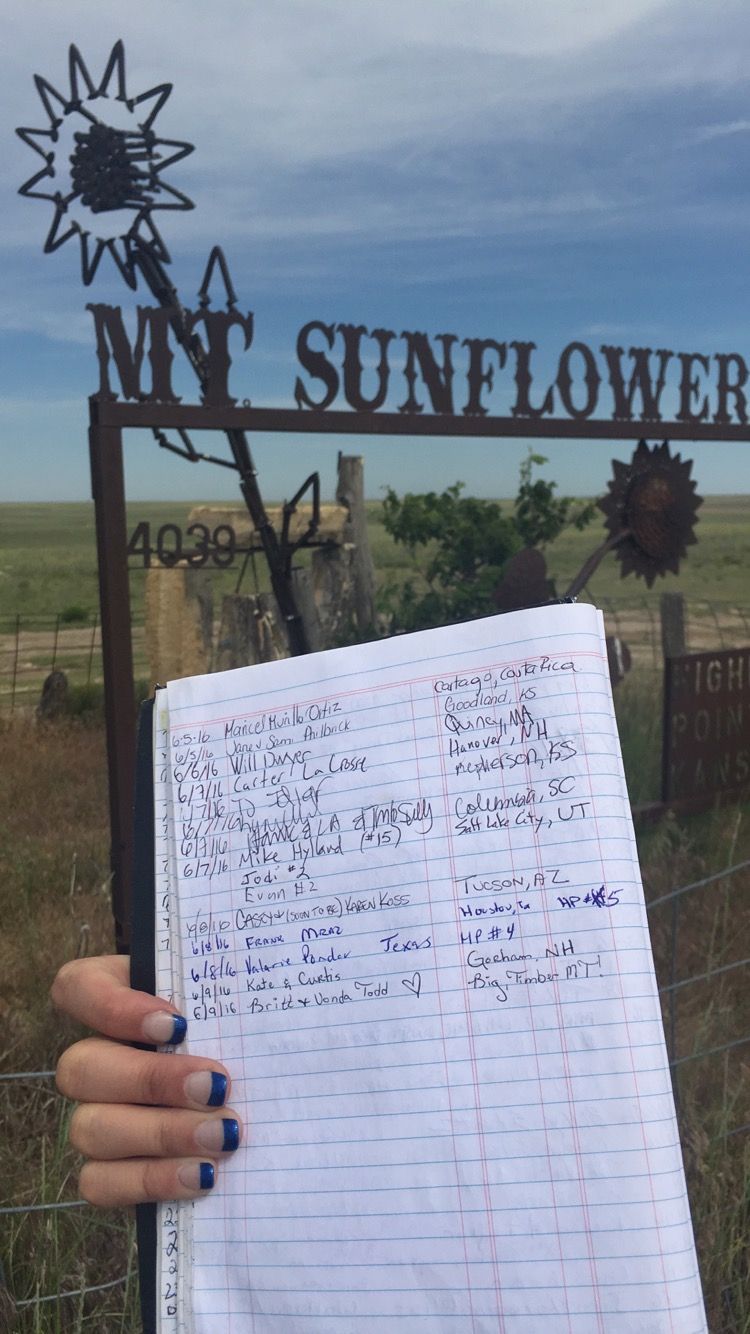 MT. SUNFLOWER
4039
HIGH
POIN
KANS
6-5-16 Maricel Murillo Ortiz Cartago, Costa Rica
6/5/16 Jane & Sami Philbrick Goodland, KS
6/6/16 Will Dwyer Quincy, MA
6/7/16 Carter La Crosse Hanover, NH
6/7/16 McPherson, KS
6/7/16
6/7/16 Hank & LA & Columbia, SC
6/7/16 Mike Hyland (#15) Salt Lake City, UT
Jodi #2
Evan #2
CASEY & (SOON TO BE) KAREN KOSS TUCSON, AZ
6/8/16 FRANK MRAZ Houston, HP #5
6/8/16 Valarie Ponder Texas HP #4
6/9/16 Kate & Curtis Gorham, NH
6/9/16 Britt & Vonda Todd ♡ Big Timber MT!